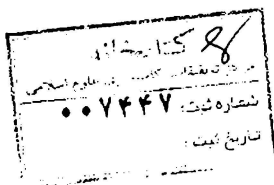 کتابخانه
مرکز تحقیقات کامپیوتری علوم اسلامی
شماره ثبت: ۰۰۷۴۴۷
تاریخ ثبت: